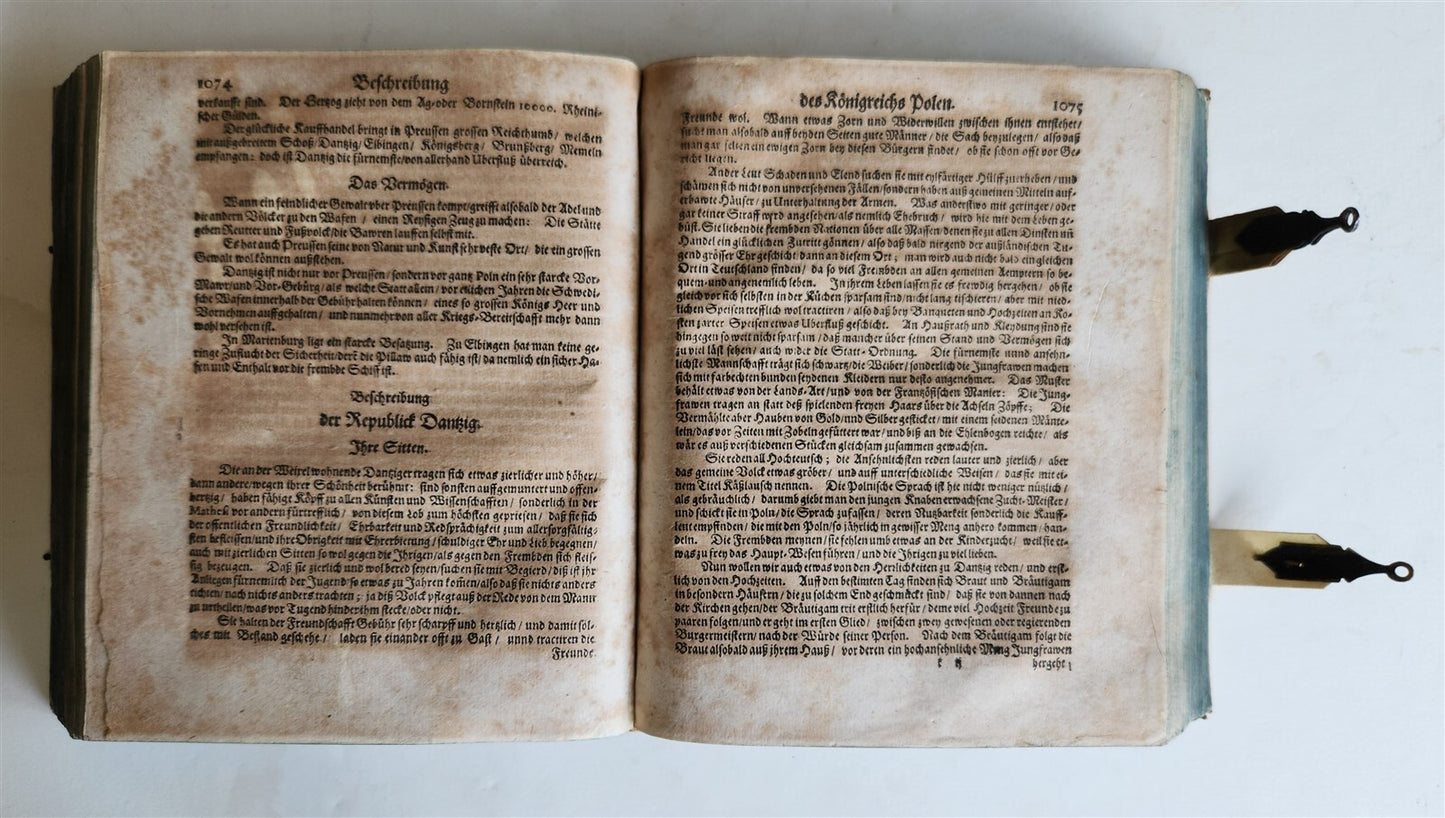 1074
Beschreibung
verkaufft sind. Der Hertzog zieht von dem Ag- oder Bornstein 10000. Rheini-
scher Gülden.
Der glückliche Kauffhandel bringt in Preussen grossen Reichthumb / welchen
mit außgebreitem Schoß / Dantzig / Elbingen / Königsberg / Brunßberg / Memeln
empfangen: doch ist Dantzig die fürnemste / von allerhand Uberfluß überreich.
Das Vermögen.
Wann ein feindlicher Gewalt vber Preussen kompt / greifft alsobald der Adel und
die andern Völcker zu den Wafen / einen Reysigen Zeug zu machen: Die Stätte
geben Reutter und Fußvolck / die Bawren lauffen selbst mit.
Es hat auch Preussen seine von Natur und Kunst sehr veste Ort / die ein grossen
Gewalt wol können außstehen.
Dantzig ist nicht nur vor Preussen / sondern vor gantz Poln ein sehr starcke Vor-
Mawr / und Vor-Gebürg / als welche Statt allein / vor etlichen Jahren die Schwedi-
sche Wafen innerhalb der Gebühr halten können / eines so grossen Königs Heer und
Vornehmen auffgehalten / und nunmehr von aller Kriegs-Bereitschafft mehr dann
wohl versehen ist.
In Marienburg ligt ein starcke Besatzung. Zu Elbingen hat man keine ge-
ringe Zuflucht der Sicherheit / derē die Pillaw auch fähig ist / da nemlich ein sicher Ha-
fen und Enthalt vor die frembde Schiff ist.
Beschreibung
der Republick Dantzig.
Ihre Sitten.
Die an der Weixel wohnende Dantziger tragen sich etwas zierlicher und höher /
dann andere / wegen ihrer Schönheit berühmt: sind sonsten auffgemuntert und offen-
hertzig / haben fähige Köpff zu allen Künsten und Wissenschafften / sonderlich in der
Mathesi vor andern fürtrefflich / von diesem Lob zum höchsten gepriesen / daß sie sich
der offentlichen Freundlichkeit / Ehrbarkeit und Redsprächigkeit zum allersorgfältig-
sten befleissen / und ihre Obrigkeit mit Ehrerbietung / schuldiger Ehr und Lieb begegnen /
auch mit zierlichen Sitten so wol gegen die Ihrigen / als gegen den Frembden sich fleis-
sig bezeugen. Daß sie zierlich und wol bered seyen / suchen sie mit Begierd / diß ist ihr
Anliegen fürnemlich der Jugend / so etwas zu Jahren kom̄en / also daß sie nichts anders
tichten / nach nichts anders trachten; ja diß Volck pflegt auß der Rede von dem Mann
zu urtheilen / was vor Tugend hinder ihm stecke / oder nicht.
Sie halten der Freundschafft Gebühr sehr scharpff und hertzlich / und damit sol-
ches mit Bestand geschehe / laden sie einander offt zu Gast / unnd tractiren die
Freunde
des Königreichs Polen.
1075
Freunde wol. Wann etwas Zorn und Widerwillen zwischen ihnen entstehet /
sucht man alsobald auff beyden Seiten gute Männer / die Sach beyzulegen / also daß
man gar selten ein ewigen Zorn bey diesen Bürgern findet / ob sie schon offt vor Ge-
richt liegen.
Ander Leut Schaden und Elend suchen sie mit eylfärtiger Hülff zu erheben / und
schäwen sich nicht von unversehenen Fällen / sondern haben auß gemeinen Mitteln auf-
erbawte Häuser / zu Unterhaltung der Armen. Was anderstwo mit geringer / oder
gar keiner Straff wird angesehen / als nemlich Ehbruch / wird hie mit dem Leben ge-
büst. Sie lieben die frembden Nationen über alle Massen / denen sie zu allen Dinsten uñ
Handel ein glücklichen Zutritt gönnen / also daß bald nirgend der außländischen Tu-
gend grösser Ehr geschicht dann an diesem Ort; man wird auch nicht bald ein gleichen
Ort in Teutschland finden / da so viel Frembden an allen gemeinen Aemptern so be-
quem und angenemlich leben. In ihrem Leben lassen sie es frewdig hergehen / ob sie
gleich vor sich selbsten in der Küchen sparsam sind / nicht lang tischieren / aber mit nied-
lichen Speisen trefflich wol tractiren / also daß bey Banqueten und Hochzeiten an Ko-
sten zarter Speisen etwas Uberfluß geschicht. An Haußrath und Kleydung sind sie
hingegen so weit nicht sparsam / daß mancher über seinen Stand und Vermögen sich
zu viel läst sehen / auch wider die Statt-Ordnung. Die fürnemste unnd ansehn-
lichste Mannschafft trägt sich schwartz / die Weiber / sonderlich die Jungfrawen machen
sich mit farbechten bunden seydenen Kleidern nur desto angenehmer. Das Muster
behält etwas von der Lands-Art / und von der Frantzösischen Manier: Die Jung-
frawen tragen an statt deß spielenden freyen Haars über die Achseln Zöpffe; Die
Vermählte aber Hauben von Gold / und Silber gesticket / mit einem seidenen Mänte-
lein / das vor Zeiten mit Zobeln gefüttert war / und biß an die Ehlenbogen reichte / als
wär es auß verschiedenen Stücken gleichsam zusammen gewachsen.
Sie reden all Hochteutsch; die Ansehnlichsten reden lauter und zierlich / aber
das gemeine Volck etwas gröber / und auff unterschiedliche Weisen / das sie mit ei-
nem Titel Käßlausch nennen. Die Polnische Sprach ist hie nicht weniger nützlich /
als gebräuchlich / darumb giebt man den jungen Knaben erwachsene Zucht-Meister /
und schickt sie in Poln / die Sprach zufassen / deren Nutzbarkeit sonderlich die Kauff-
leut empfinden / die mit den Poln / so jährlich in gewisser Meng anhero kommen / han-
deln. Die Frembden meynen / sie fehlen umb etwas an der Kinderzucht / weil sie et-
was zu frey das Haupt-Wesen führen / und die Ihrigen zu viel lieben.
Nun wollen wir auch etwas von den Herrlichkeiten zu Dantzig reden / und erst-
lich von den Hochzeiten. Auff den bestimten Tag finden sich Braut und Bräutigam
in besondern Häusern / die zu solchem End geschmückt sind / daß sie von dannen nach
der Kirchen gehen / der Bräutigam trit erstlich herfür / deme viel Hochzeit Freunde zu
paaren folgen / und er geht im ersten Glied / zwischen zwey gewesenen oder regierenden
Burgermeistern / nach der Würde seiner Person. Nach dem Bräutigam folgt die
Braut alsobald auß jhrem Hauß / vor deren ein hochansehnliche Mäng Jungfrawen
hergeht /